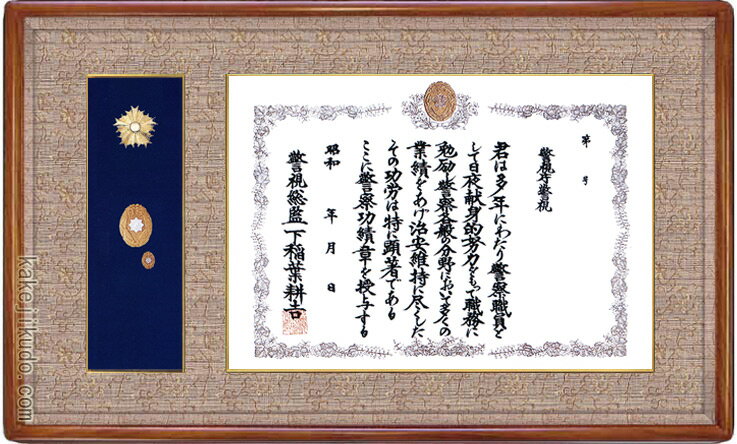 第　号
警視庁警視
君は多年にわたり警察職員と
して日夜献身的努力をもって職務に
勉励し警察各般の分野において多くの
業績をあげ治安維持に尽くした
その功労は特に顕著である
ここに警察功績章を授与する
昭和　年　月　日
警視総監 下稲葉耕吉
kakejikudo.com